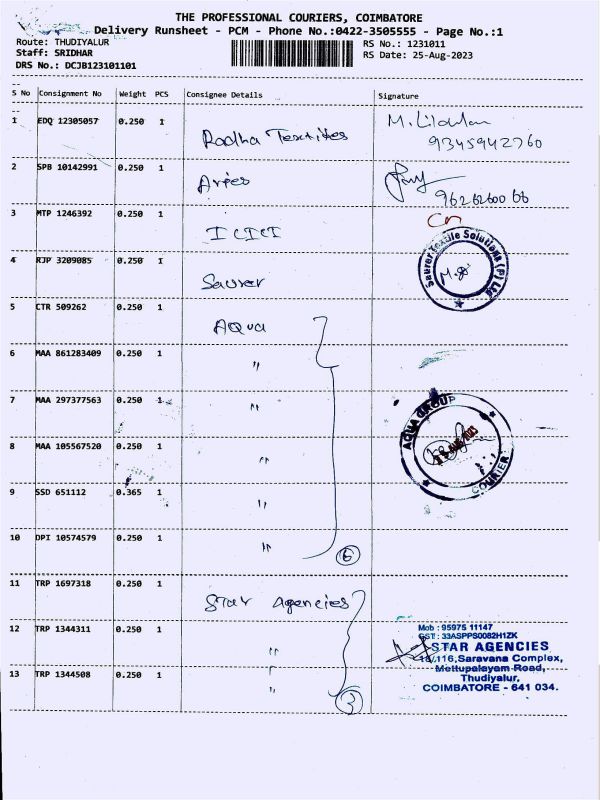 THE PROFESSIONAL COURIERS, COIMBATORE
Delivery Runsheet - PCM - Phone No.:0422-3505555 - Page No.:1
Route: THUDIYALUR
Staff: SRIDHAR
DRS No.: DCJB123101101
RS No.: 1231011
RS Date: 25-Aug-2023
S No Consignment No Weight PCS Consignee Details Signature
1 EDQ 12305057 0.250 1 Radha Textiles 9345942760
2 SPB 10142991 0.250 1 Aries
3 MTP 1246392 0.250 1 ICICI
4 RJP 3209085 0.250 1 Saurer
Saurer Textile Solutions (P) Ltd
5 CTR 509262 0.250 1 AQUA
6 MAA 861283409 0.250 1 "
7 MAA 297377563 0.250 1 "
8 MAA 105567520 0.250 1 "
AQUA GROUP
COURIER
9 SSD 651112 0.365 1 "
10 DPI 10574579 0.250 1 "
6
11 TRP 1697318 0.250 1 Star Agencies
12 TRP 1344311 0.250 1 "
13 TRP 1344508 0.250 1 "
3
Mob : 95975 11147
GST: 33ASPPS0082H1ZK
STAR AGENCIES
18/116,Saravana Complex,
Mettupalayam Road,
Thudiyalur,
COIMBATORE - 641 034.